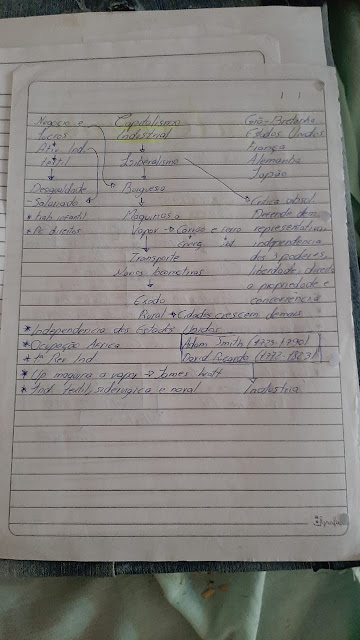 Negocio e
Lucros
Ativ. Ind.
têxtil
Desigualdade
- Salariado
* trab infantil
* Pc direitos
Capitalismo
Industrial
Liberalismo
Burguesa
Maquinas a
Vapor → Carvão e ferro
Energ
Transporte
Novas locomotivas
Exodo
Rural * Cidades crescem demais
Grã-Bretanha
Estados Unidos
França
Alemanha
Japão
Critica absol.
Defende dem.
representativa
independencia
dos 3 poderes,
liberdade, direito
a propriedade e
concorrencia
* Independencia dos Estados Unidos
* Ocupação Africa
* 1ª Rev Ind
Adam Smith (1723-1790)
David Ricardo (1772-1823)
* Up maquina a vapor → James Watt
* Ind. textil, siderurgica e naval
Industria